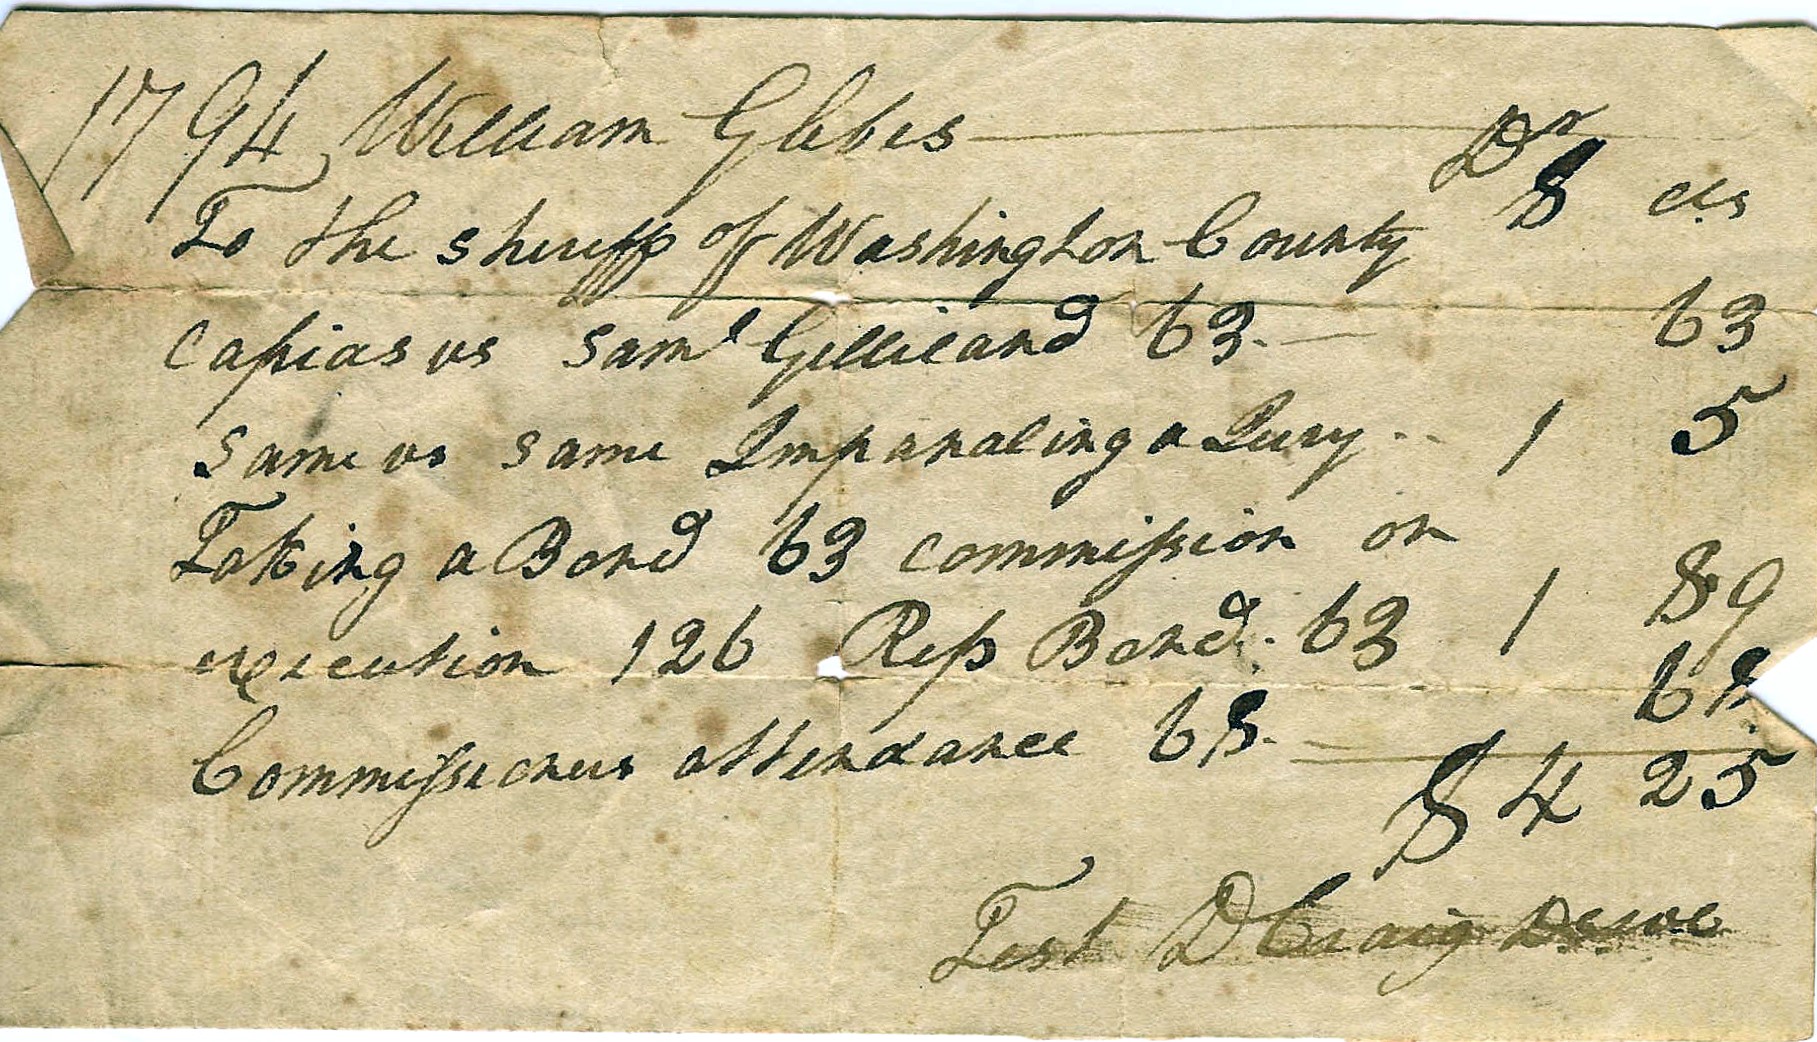 1794 William Gibbes Dr
To the sheriff of Washington County $ cts
Capias vs Saml Gillileand 63. 63
Same vs same Impanaling a Jury 1 5
Taking a Bond 63 commission on
execution 126 Reps Bond. 63 1 89
Commissioners attendance 68 68
$ 4 25
Test D Craig